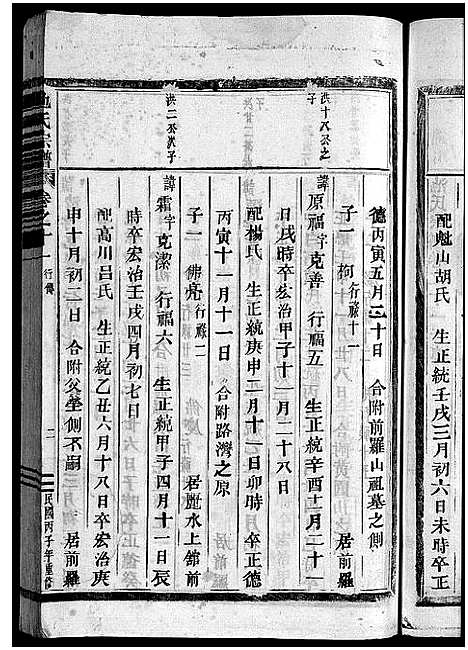 配魁山胡氏 生正統壬戌三月初六日未時卒正
德丙寅五月二十日 合附前羅山祖墓之側
子一 栒行祿十一 居前羅
洪十八公之子
諱原福字克善 行福五 生正統辛酉十二月二十一
日戌時卒宏治甲子十一月二十八日
配楊氏 生正統庚申二月十一日卯時 卒正德
丙寅十一月十一日 合附路灣之原
子一 佛亮行祿二 居麗水上舘前
洪二公次子
諱霜字克潔 行福六 生正統甲子四月十一日辰
時卒宏治壬戌四月初七日
配高川呂氏 生正統乙丑六月十八日卒宏治庚
申十月初二日 合附父塋側不嗣 居前羅
氏宗譜 卷之十一 行傳 二 民國丙子年重修